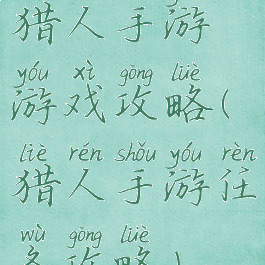 猎人手游
yóu xì gōng lüè
游戏攻略(
liè rén shǒu yóu rèn
猎人手游任
wù gōng lüè
务攻略)